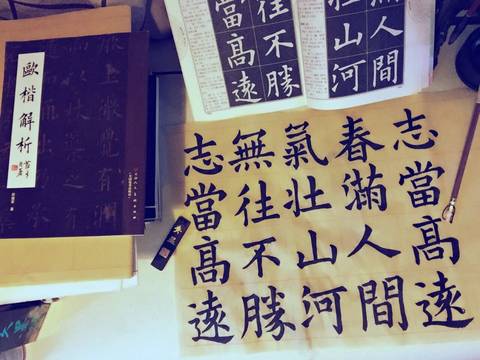 歐楷解析
滿人間
壯山河
往不勝
當髙遠
志當髙遠
春滿人間
氣壯山河
無往不勝
志當髙遠